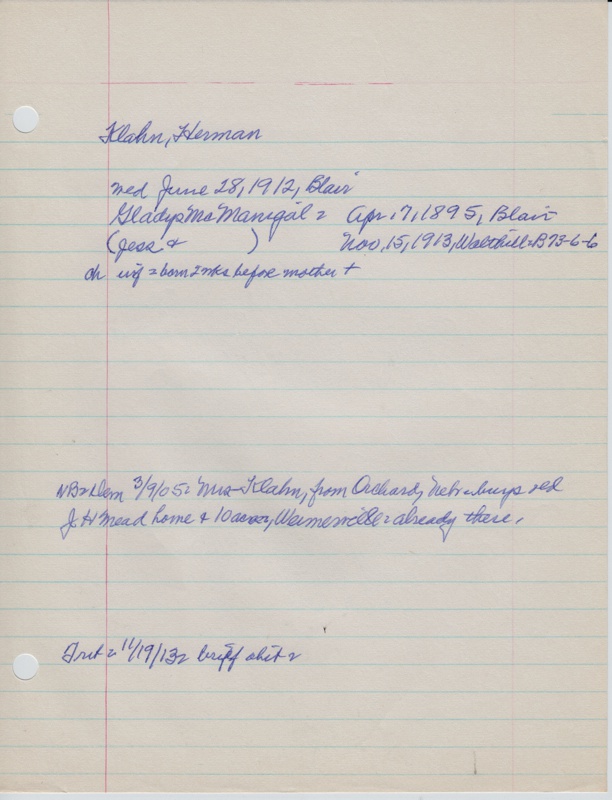 Klahn, Herman
wed June 28, 1912, Blair
Gladys McManigal = Apr. 17, 1895, Blair
(Jess + ) Nov, 15, 1913, Walthill = B73-6-6
ch inf = born 2 wks before mother +
3/9/05 = Mrs Klahn, from Orchard, Nebr = buys
J. H Mead home + 10 acres, = already there.
= 11/19/13 = brief obit =